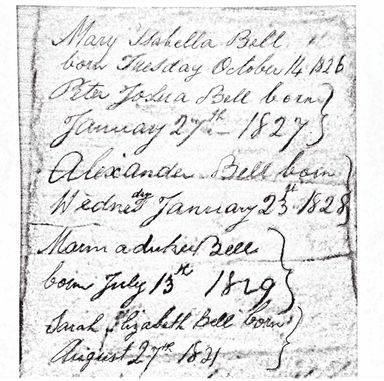 Mary Isabella Bell
born Tuesday October 14 1826
Peter Joshua Bell born
January 27th - 1827
Alexander Bell born
Wednesdy January 23st 1828
Marmaduke Bell
born July 13th 1829
Sarah Elizabeth Bell born
August 27th 1831